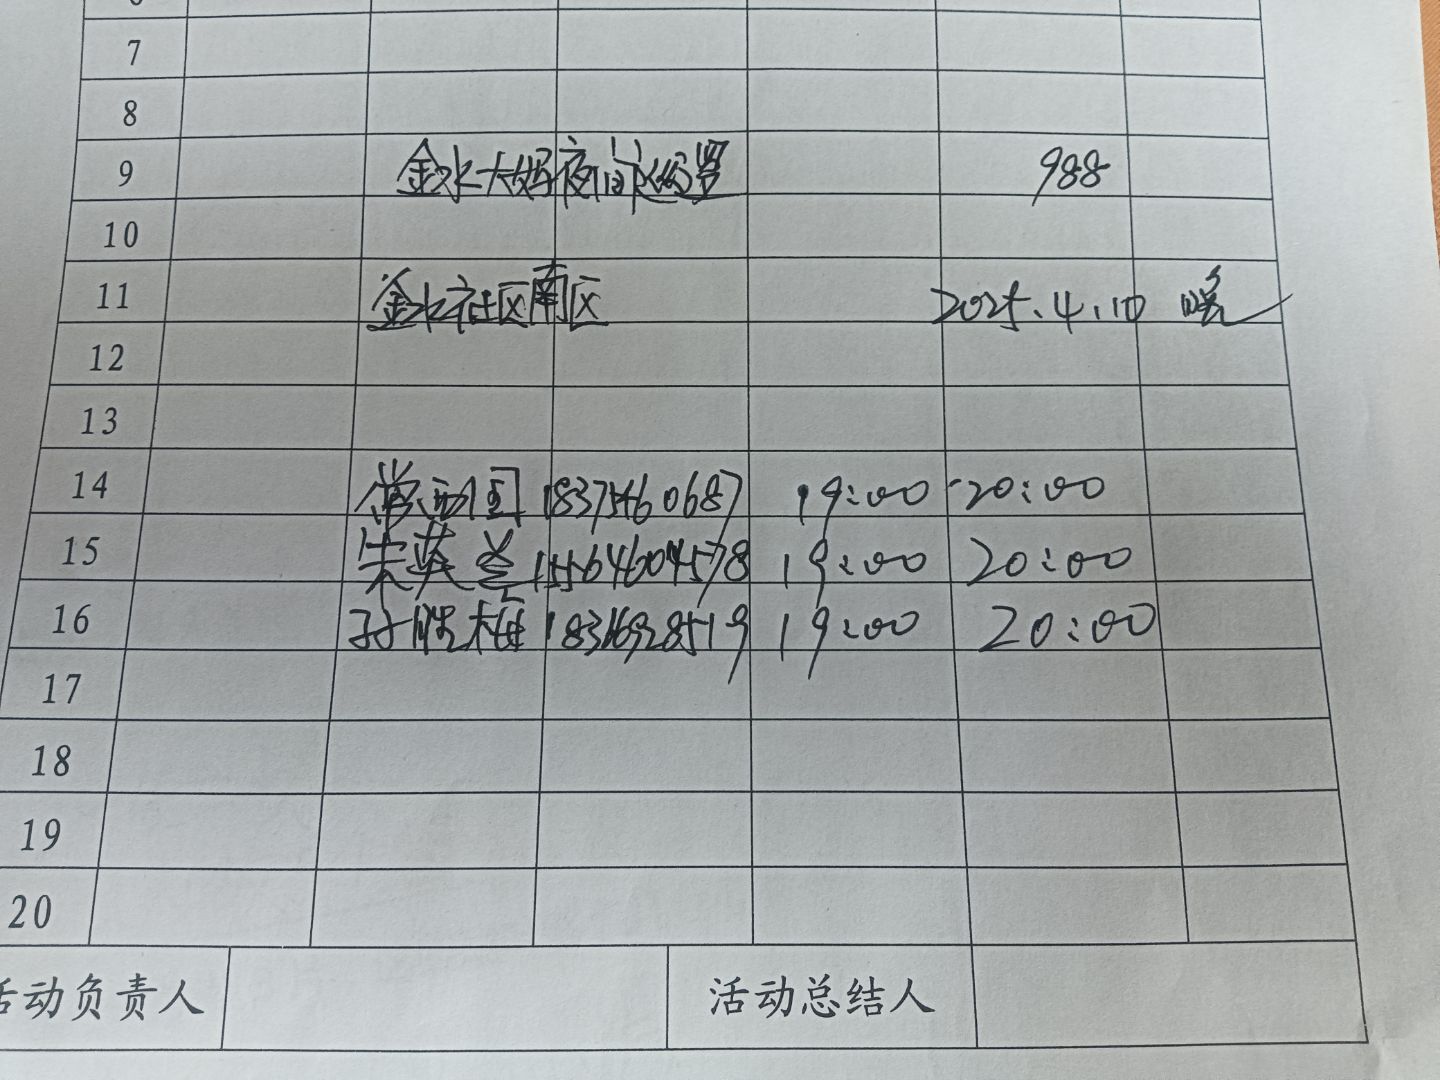 7
8
9 金水大妈夜间巡逻 988
10
11 金水社区南区 2025.4.10 晚
12
13
14 国 18375460687 19:00-20:00
15 朱英 15564604578 19:00 20:00
16 孙 梅 18316928519 19:00 20:00
17
18
19
20
活动负责人 活动总结人